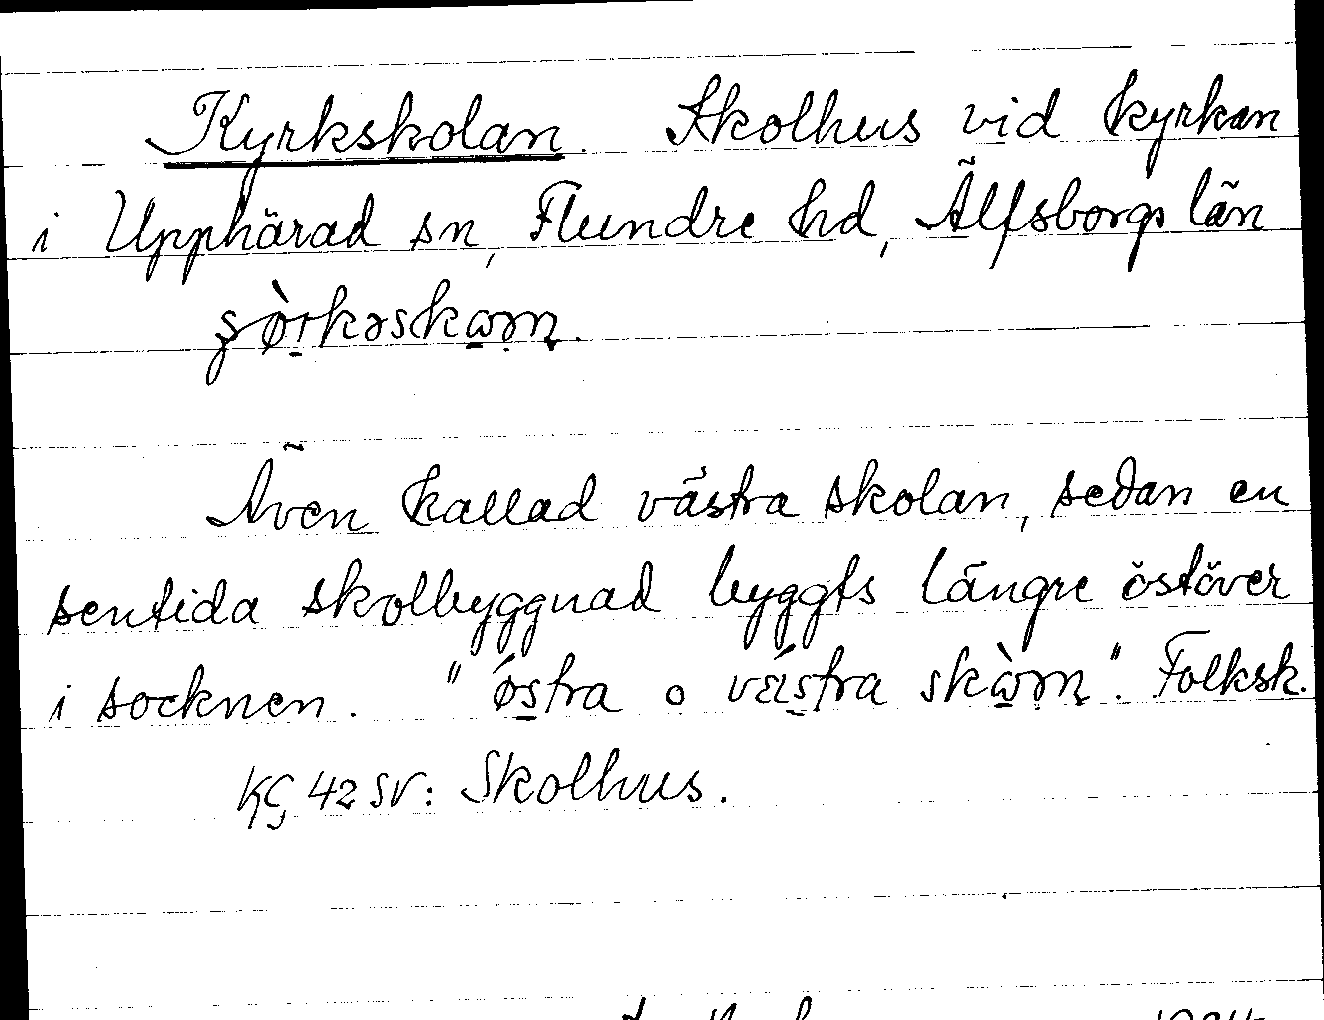 Kyrkskolan. Skolhus vid kyrkan
i Upphärad sn, Flundre hd, Älfsborgs län
Även kallad västra skolan, sedan en
sentida skolbyggnad byggts längre österöver
i socknen. "østra o västra skɷ̀ɷn". Folksk.
KG 42 SV: Skolhus.